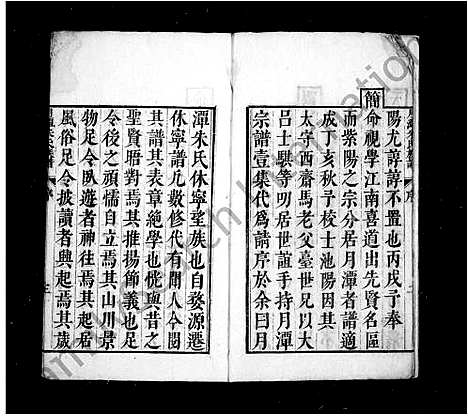 陽尤諄諄不置也丙戌予奉
簡
命視學江南喜道出先賢名區
而紫陽之宗分居月潭者譜適
成丁亥秋予校士池陽因其
太守西齋馬老父臺世兄以大
呂士騏等明居世誼手持月潭
宗譜壹集代為請序於余曰月
潭朱氏休寧望族也自婺源遷
休寧譜凡數修代有聞人今閱
譜其表章絶學也恍與昔之
聖賢晤對焉其推揚節義也足
令後之頑懦自立焉其山川景
物足令臥遊者神往焉其起居
風俗足令披讀者興起焉其歲
序